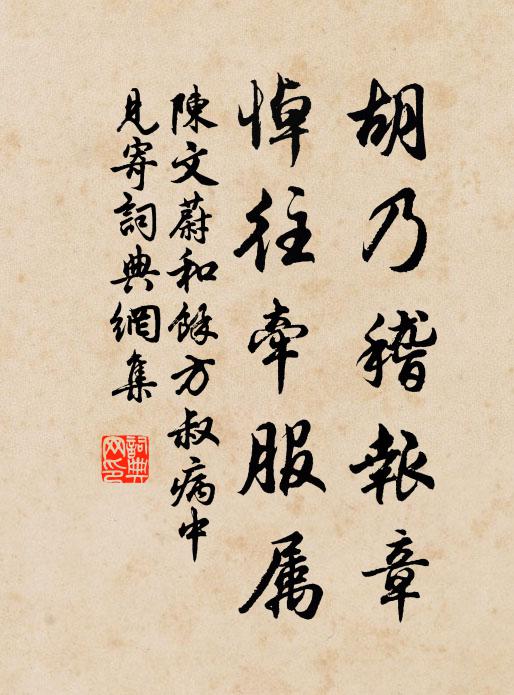 胡乃稽報章
悼往牽服属
陳文蔚和餘方叔病中
見寄詞典網集
詞典網印